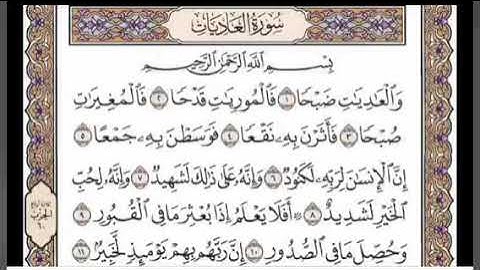 سُورَةُ العَادِيَاتِ
بِسْمِ اللَّهِ الرَّحْمَٰنِ الرَّحِيمِ
وَالْعَادِيَاتِ ضَبْحًا ١ فَالْمُورِيَاتِ قَدْحًا ٢ فَالْمُغِيرَاتِ
صُبْحًا ٣ فَأَثَرْنَ بِهِ نَقْعًا ٤ فَوَسَطْنَ بِهِ جَمْعًا ٥
إِنَّ الْإِنسَانَ لِرَبِّهِ لَكَنُودٌ ٦ وَإِنَّهُ عَلَىٰ ذَٰلِكَ لَشَهِيدٌ ٧ وَإِنَّهُ لِحُبِّ
الْخَيْرِ لَشَدِيدٌ ٨ أَفَلَا يَعْلَمُ إِذَا بُعْثِرَ مَا فِي الْقُبُورِ ٩
وَحُصِّلَ مَا فِي الصُّدُورِ ١٠ إِنَّ رَبَّهُم بِهِمْ يَوْمَئِذٍ لَّخَبِيرٌ ١١
الحزب
٦٠